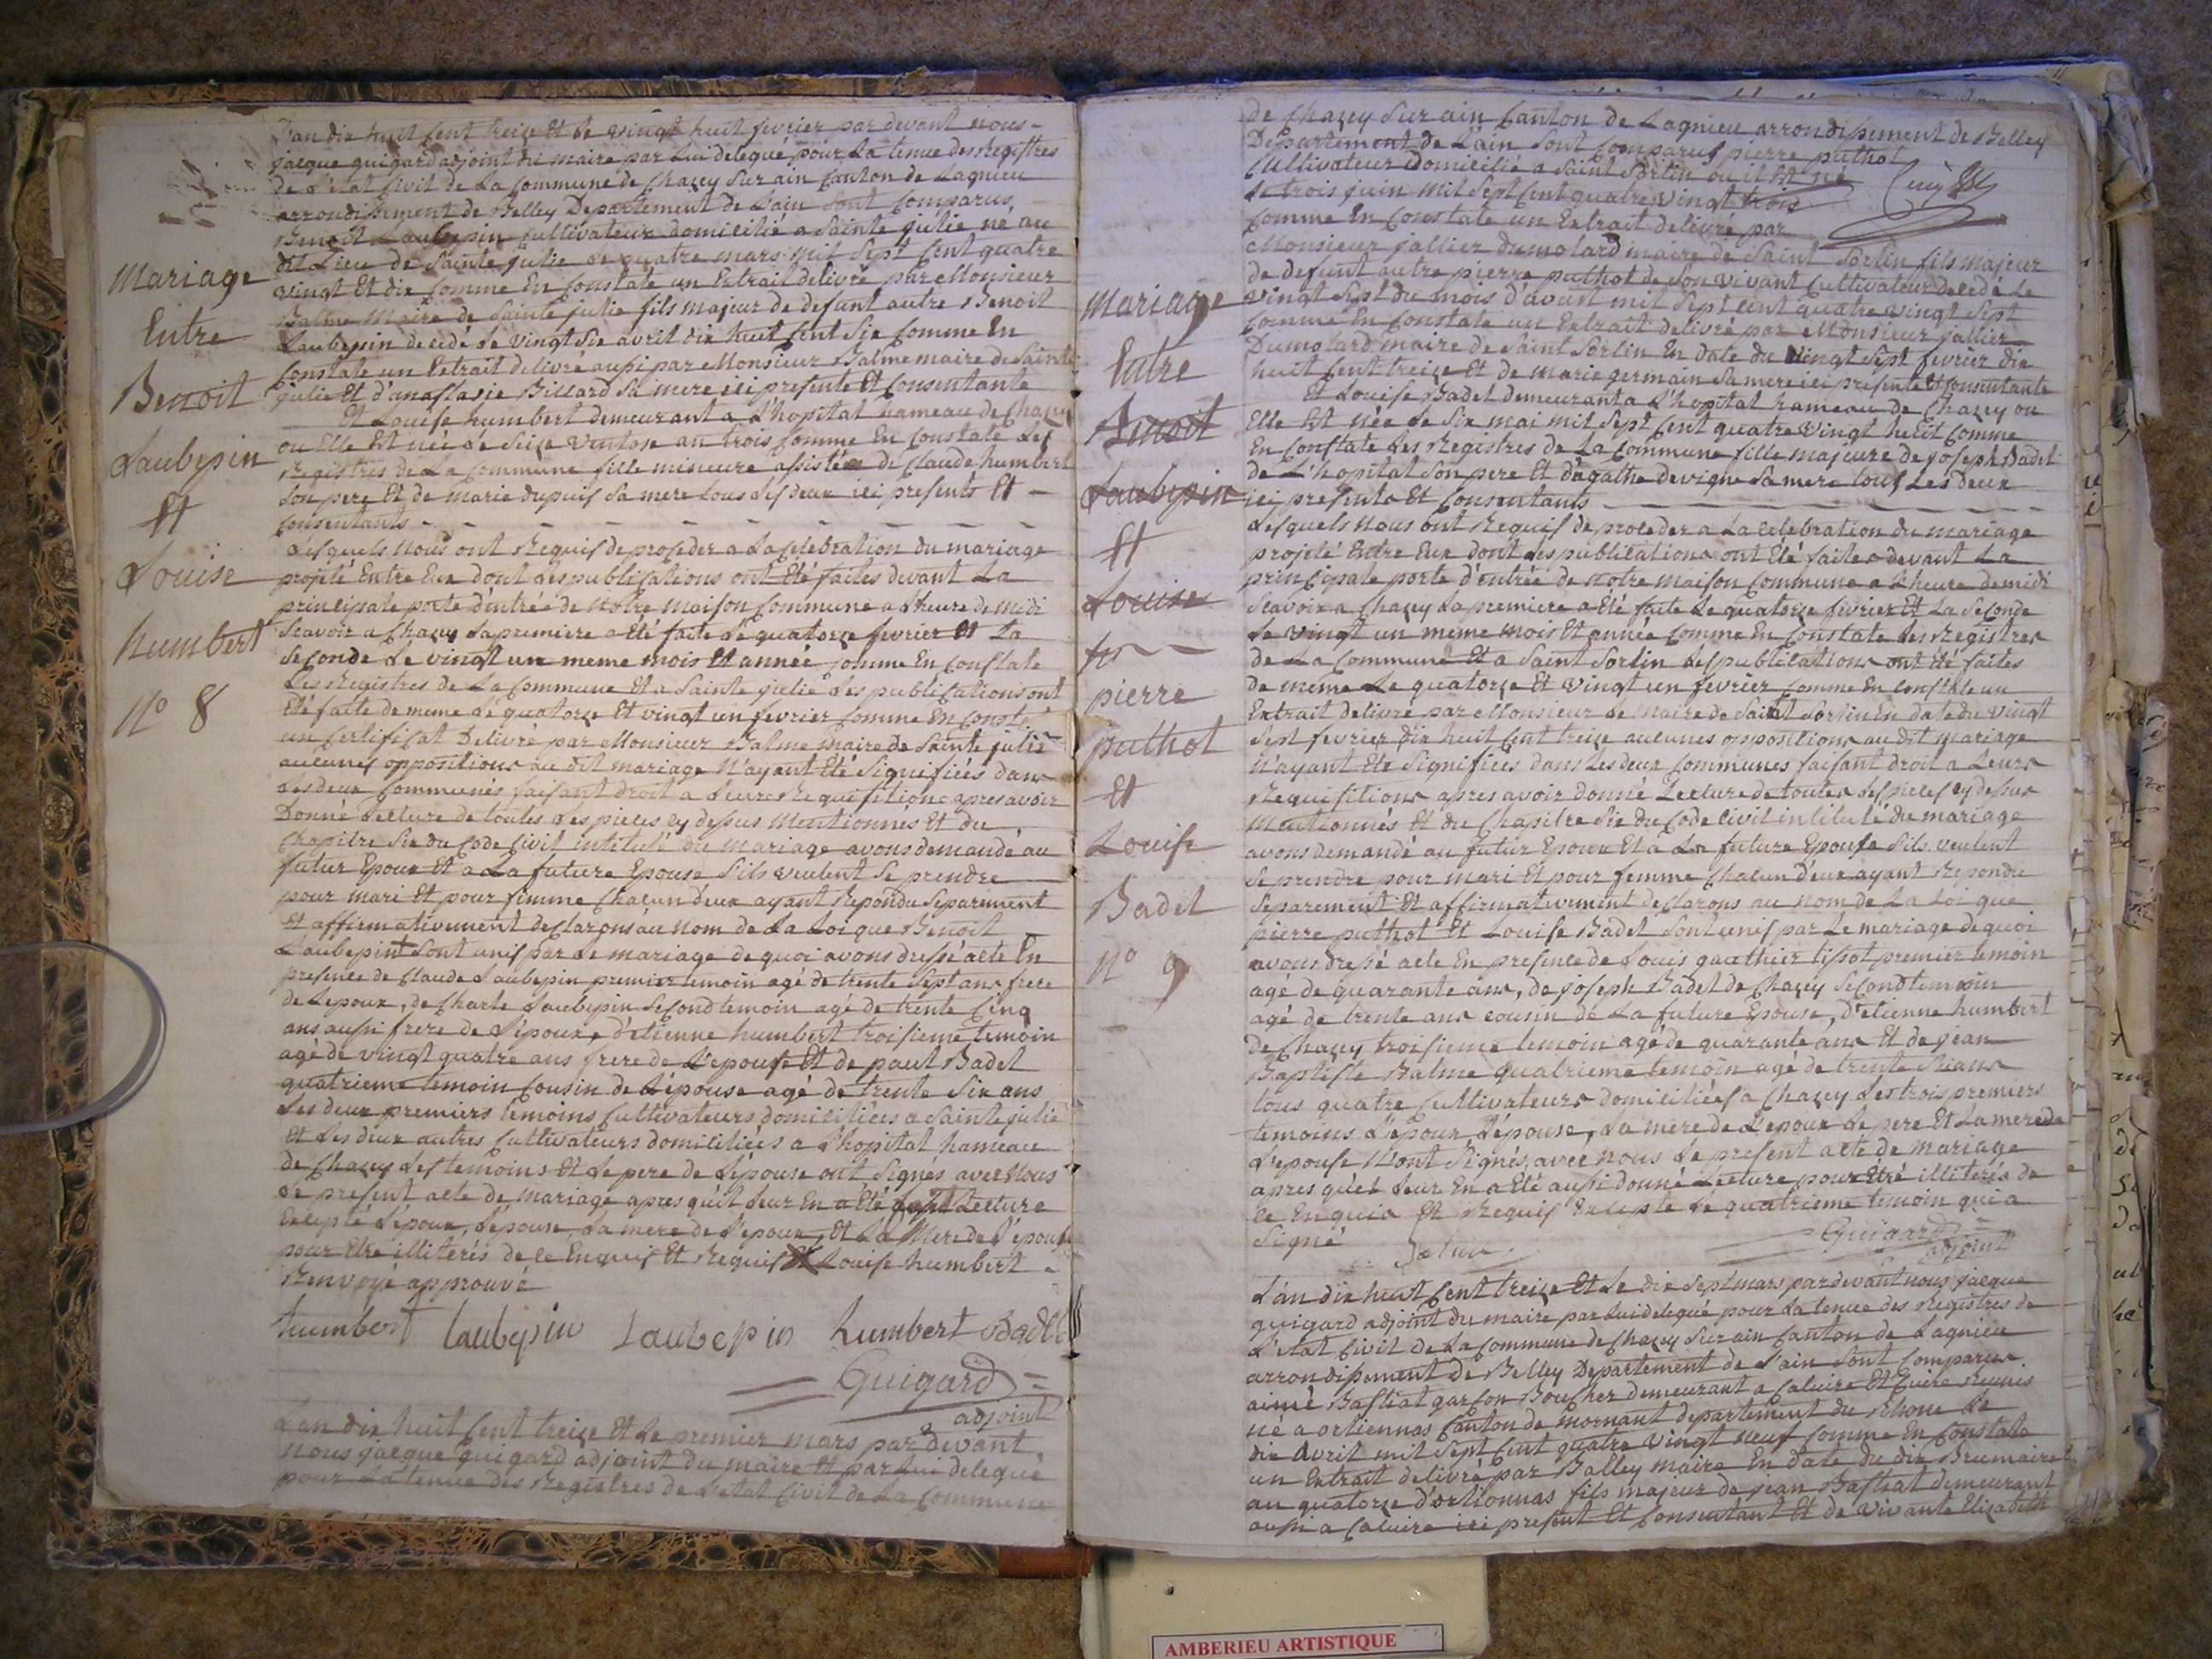 L'an dix huit Cent treize Et le vingt huit fevrier par devant nous
jacque guigard adjoint du maire par Lui delegué pour La tenue des Registres
de L'état Civil de La Commune de Chazey Sur ain Canton de Lagnieu
arrondissement de Belley Departement de L'ain Sont Comparus
Benoit Laubepin Cultivateur domicilié a Sainte julie né au
dit Lieu de Sainte julie le quatre mars mil Sept Cent quatre
vingt Et dix Comme En Constate un Extrait delivré par Monsieur
Balme Maire de Sainte julie fils majeur de defunt autre Benoit
Laubepin decedé le vingt Six avril dix huit Cent Six Comme En
Constate un Extrait delivré aussi par Monsieur Balme maire de Sainte
julie Et d'anastasie Billard Sa mere ici presente Et Consentante
Et Louise humbert demeurant a L'hopital hameau de Chazey
ou Elle Est née le Seize Ventose an trois Comme En Constate Les
Registres de La Commune fille mineure assistée de Claude humbert
Son pere Et de marie dupuis Sa mere tous Les deux ici presents Et
Consentants
Lesquels Nous ont Requis de proceder a La Celebration du mariage
projeté Entre Eux dont Les publications ont Eté faites devant La
principale porte d'entrée de Notre maison Commune a L'heure de midi
Scavoir a Chazey La premiere a Eté faite Le quatorze fevrier Et La
Seconde Le vingt un meme mois Et année Comme En Constate
Les Registres de La Commune Et a Sainte julie Les publications ont
Eté faite de meme Le quatorze Et vingt un fevrier Comme En Consté
un Certificat Delivré par Monsieur Balme maire de Sainte julie
aucunes oppositions au dit mariage N'ayant Eté Signifiées dans
Les deux Communes faisant droit a Leurs Requisitions apres avoir
Donné Lecture de toutes Les pieces cy dessus Mentionnés Et du
Chapitre Six du Code Civil intitulé du Mariage avons demandé au
futur Epoux Et a La future Epouse S'ils veulent Se prendre
pour mari Et pour femme Chacun d'eux ayant Repondu Separement
Et affirmativement declarons au Nom de La Loi que Benoit
Laubepin Sont unis par Le mariage de quoi avons dressé acte En
presence de Claude Laubepin premier temoin agé de trente Sept ans frere
de Lepoux, de Charle Laubepin Second temoin agé de trente Cinq
ans aussi frere de L'époux, d'etienne humbert troisieme temoin
agé de vingt quatre ans frere de L'epouse Et de paul Badet
quatrieme temoin Cousin de L'épouse agé de trente Six ans
Les deux premiers temoins Cultivateurs domiciliées a Sainte julie
Et Les deux autres Cultivateurs domiciliées a L'hopital hameau
de Chazey Les temoins Et Le pere de L'épouse ont Signés avec Nous
Le present acte de mariage apres qu'il Leur En a Eté fait Lecture
Excepté L'époux, L'épouse, La mere de L'epoux, Et La Mere de L'épouse
pour Etre illiterés de ce Enquis Et Requis Et Louise humbert
Renvoyé approuvé
humbert Laubepin Laubepin humbert Badet
Guigard
adjoint
L'an dix huit Cent treize Et Le premier mars par devant
Nous jacque guigard adjoint du maire Et par Lui delegué
pour La tenue des Registres de L'etat Civil de La Commune
Mariage
Entre
Benoit
Laubepin
Et
Louise
humbert
N° 8
de Chazey Sur ain Canton de Lagnieu arrondissement de Belley
Département de L'ain Sont Comparus pierre puthot
Cultivateur Domicilié a Saint Sorlin ou il Est né
Le trois juin Mil Sept Cent quatre vingt trois
Comme En Constate un Extrait delivré par
Monsieur jallier Dumolard maire de Saint Sorlin fils majeur
de defunt autre pierre puthot de Son vivant Cultivateur decedé Le
vingt Sept du mois d'avril mil Sept Cent quatre vingt Sept
Comme En Constate un Extrait delivré par Monsieur jallier
Dumolard maire de Saint Sorlin En date du vingt Sept fevrier dix
huit Cent treize Et de marie germain Sa mere ici presente Et Consentante
Et Louise Badet demeurant a L'hopital hameau de Chazey ou
Elle Est née Le Six mai mil Sept Cent quatre vingt huit Comme
En Constate Les Registres de La Commune fille majeure de joseph Badet
de L'hopital Son pere Et d'agathe devigne Sa mere tous Les deux
ici presents Et Consentants
Lesquels Nous ont Requis de proceder a La Celebration du mariage
projeté Entre Eux dont Les publications ont Eté faites devant La
principale porte d'entrée de Notre maison Commune a L'heure de midi
Scavoir a Chazey La premiere a Eté faite Le quatorze fevrier Et La Seconde
Le vingt un meme mois Et année Comme En Constate Les Registres
de La Commune Et a Saint Sorlin Les publications ont Eté faites
de meme Le quatorze Et vingt un fevrier Comme En Constate un
Extrait delivré par Monsieur Le Maire de Saint Sorlin En date du vingt
Sept fevrier dix huit Cent treize aucunes oppositions au dit mariage
N'ayant Eté Signifiées dans Les deux Communes faisant droit a Leurs
Requisitions apres avoir donné Lecture de toutes Les pieces cy dessus
Mentionnés Et du Chapitre Six du Code Civil intitulé du mariage
avons demandé au futur Epoux Et a La future Epouse S'ils veulent
Se prendre pour mari Et pour femme Chacun d'eux ayant Repondu
Separement Et affirmativement declarons au Nom de La Loi que
pierre puthot Et Louise Badet Sont unis par Le mariage de quoi
avons dressé acte En presence de Louis gauthier tissot premier temoin
agé de quarante ans, de joseph Badet de Chazey Second temoin
agé de trente ans cousin de La future Epouse, d'etienne humbert
de Chazey troisieme temoin agé de quarante ans Et de jean
Baptiste Balme quatrieme temoin agé de trente Six ans
tous quatre Cultivateurs domiciliées a Chazey Les trois premiers
temoins L'epoux L'epouse, La mere de L'epoux Le pere Et La mere de
L'epouse N'ont Signés, avec Nous Le present acte de Mariage
apres qu'il Leur En a Eté aussi donné Lecture pour Etre illiterés de
ce Enquis Et Requis Excepté Le quatrieme temoin qui a
Signé
Guigard
adjoint
L'an dix huit Cent treize Et Le dix Sept mars par devant nous jacque
guigard adjoint du maire par Lui delegué pour La tenue des Registres de
L'etat Civil de La Commune de Chazey Sur ain Canton de Lagnieu
arrondissement de Belley Departement de L'ain Sont Comparus
aimé Bastiat garcon Boucher demeurant a Caluire Et Cuire Reunis
né a ortiennas Canton de mornant departement du Rhone Le
dix Avril mil Sept Cent quatre vingt neuf Comme En Constate
un Extrait delivré par Balley maire En date du dix Brumaire
an quatorze d'ortionnas fils majeur de jean Bastiat demeurant
aussi a Caluire ici present Et Consentant Et de vivante Elizabeth
Mariage
Entre
Benoit
Laubepin
Et
Louise
pierre
puthot
Et
Louise
Badet
N° 9
AMBERIEU ARTISTIQUE